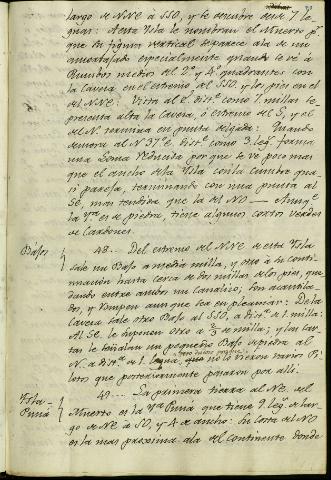 largo de NNE à SSO, y se descubre desde 7. le-
guas: A esta Isla le nombran el Muerto p.r
que su figura vertical se parece ala de un
amortajado especialmente quando se vé à
rumbos medios del 2.º y 4.º quadrantes con
la caveza en el extremo del SSO, y los pies en el
del NNE: Vista al E. dist.a como 7. millas re-
presenta alta la caveza, ó extremo del S, y el
del N. remata en punta delgada: Quando
demora al N 37º E. dist.a como 3. leg.s forma
una Loma redonda por que se ve poco mas
que el ancho de la Isla con la cumbre qua-
si pareja, terminando con una punta al
SE, mas tendida que la del NO — Aunq.e
la Ysla es de piedra, tiene algunos cortos verdes
de Cardones.
Bajos
48. Del extremo del NNE de esta Isla
sale un Bajo a media milla, y otro à su conti-
nuación hasta cerca de dos millas de los pies, que-
dando entre ambos un canalizo; son acantila-
dos, y rompen aun que sea en pleamar: De la
caveza sale otro Bajo al SSO, a dist.a de 1. milla:
Al SE. le suponen otro a 2/3 de milla; y las car-
tas le señalan un pequeño Bajo de piedra al
N. a dist.a de 1. legua, que no lo vieron varios Pi-
lotos que posteriormente pasaron por alli.
Ysla-
Puná
49. La primera tierra al NE. del
Muerto es la Ysla Puná que tiene 9. leg.s de lar-
go de NE à SO, y 4 de ancho: Su costa del NO
es la mas proxima ala del continente donde